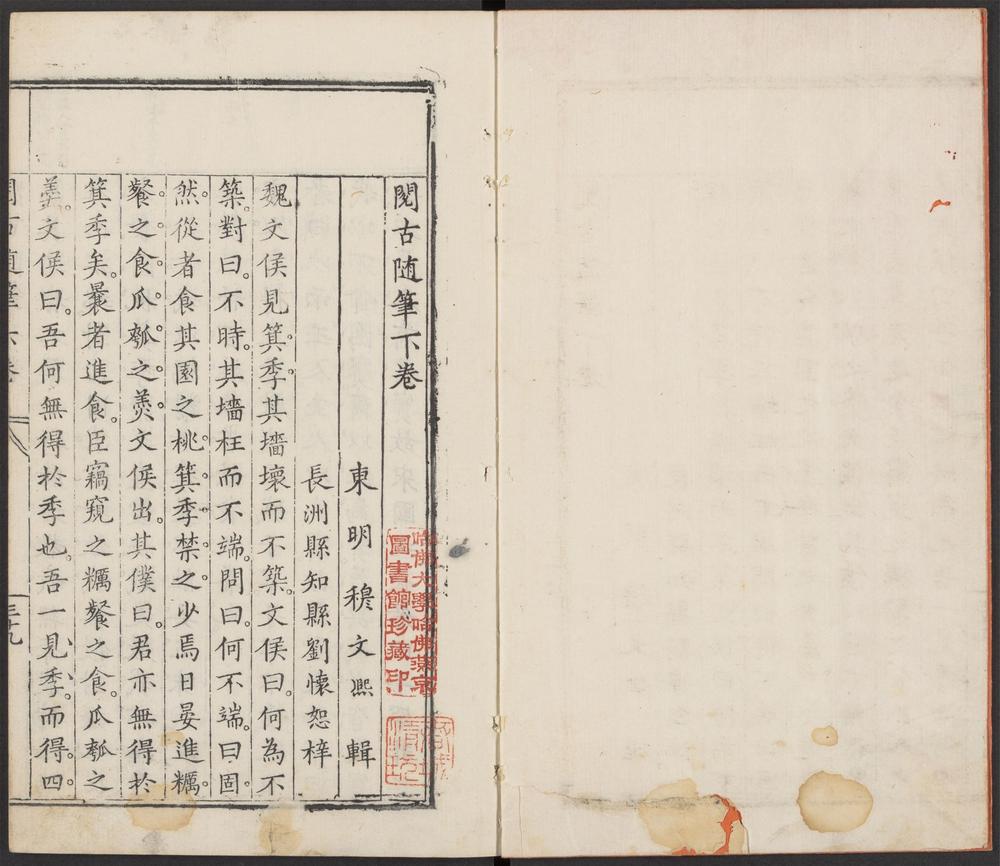 閱古随筆下卷
東明穆文熙輯
長洲縣知縣劉懷恕梓
魏文侯見箕季其墻壞而不築文侯曰何為不
築對曰不時其墻枉而不端問曰何不端曰固
然從者食其園之桃箕季禁之少焉日晏進糲
餐之食瓜瓠之羹文侯出其僕曰君亦無得於
箕季矣曩者進食臣竊窺之糲餐之食瓜瓠之
羹文侯曰吾何無得於季也吾一見季而得四
哈佛大學哈佛燕京
圖書館珍藏印